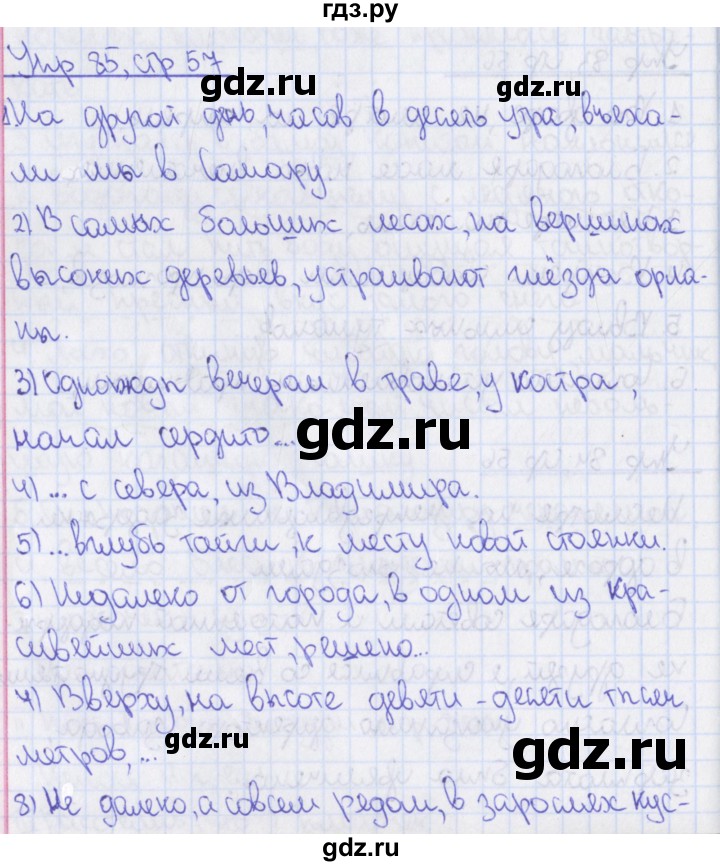 гдз.ру
Упр 85, стр 57
gdz.ru
1) На другой день, часов в десять утра, въеха-
ли мы в Самару.
gdz.ru
gdz.ru
2) В самых больших лесах, на вершинах
высоких деревьев, устраивают гнёзда орла-
ны.
3) Однажды вечером в траве, у костра,
начал сердито...
gdz.ru
4) ... с севера, из Владимира.
5) ... вглубь тайги, к месту новой стоянки.
6) Недалеко от города, в одном из кра-
сивейших мест, решено...
4) Вверху, на высоте девяти-десяти тысяч
метров, ...
gdz.ru
gdz.ru
8) Не далеко, а совсем рядом, в зарослях кус-